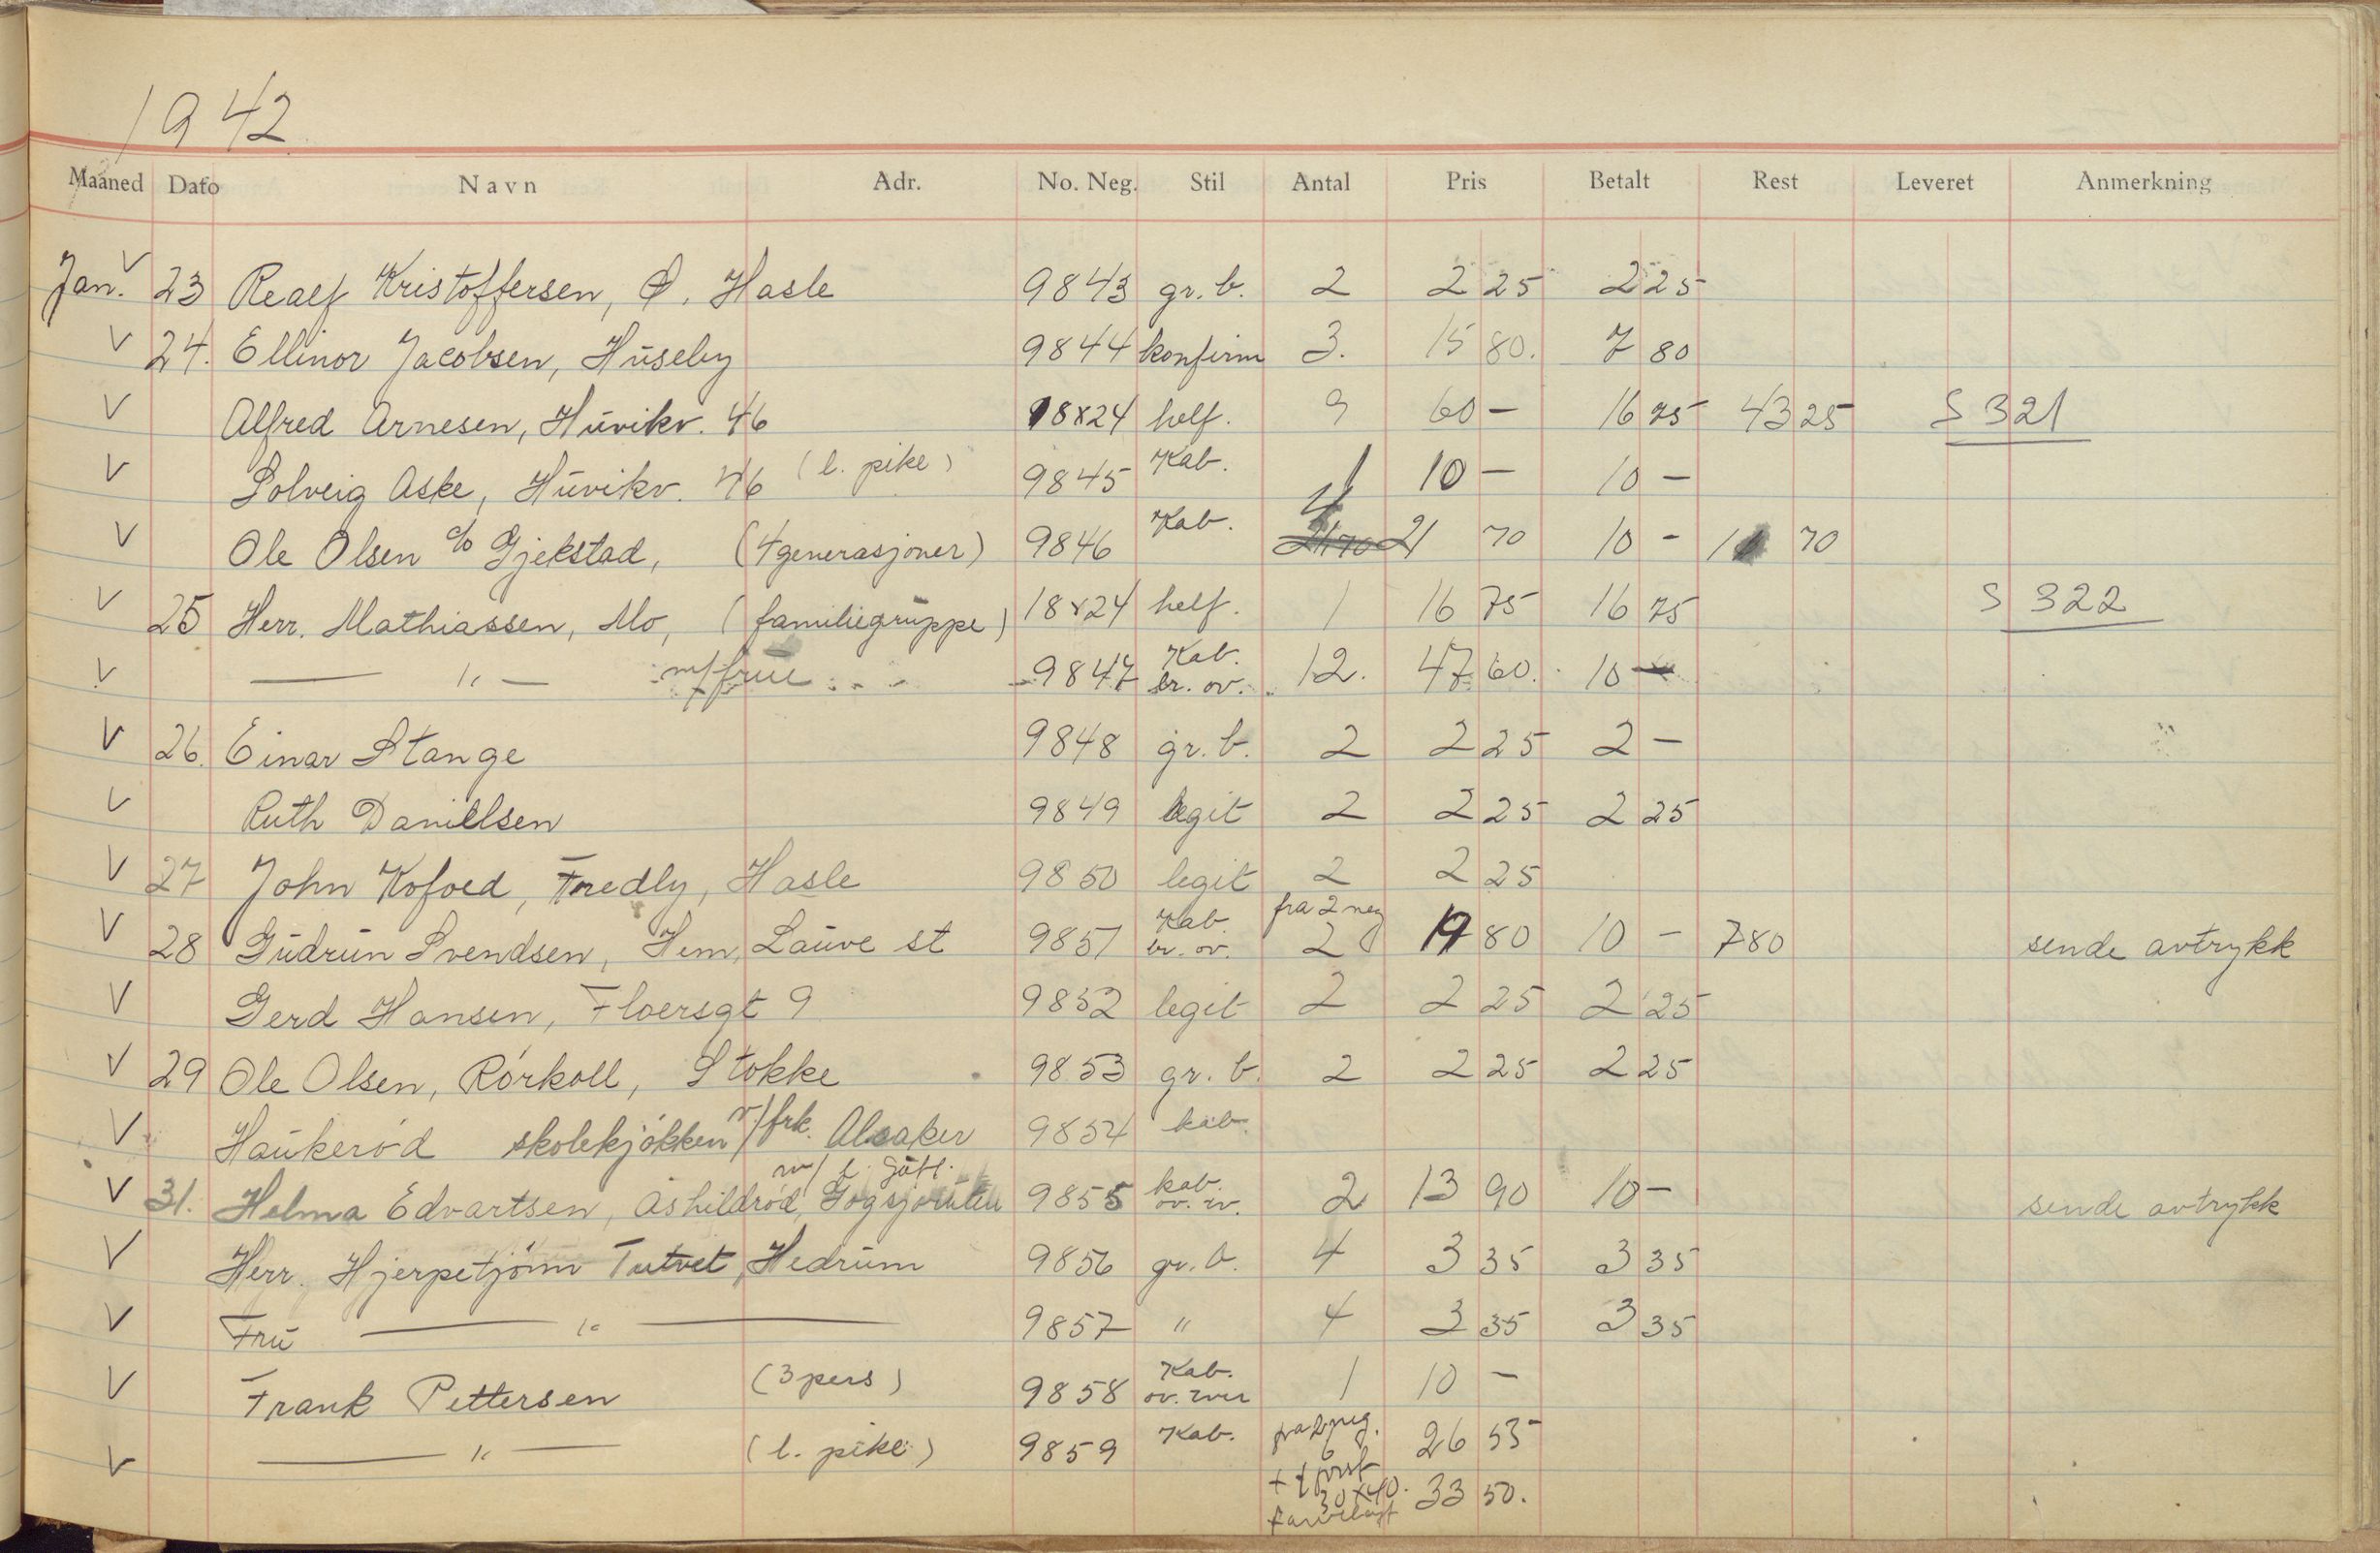 1942
Maaned Dato Navn Adr. No. Neg. Stil Antal Pris Betalt Rest Leveret Anmerkning
Jan. V 23 Realf Kristoffersen, Ø. Hasle 9843 gr. b. 2 2 25 2 25
V 24. Ellinor Jacobsen, Huseby 9844 konfirm 3. 15 80. 7 80
V Alfred Arnesen, Huvikv. 46 18x24 helf. 9 60 — 16 75 43 25 S 321
V Solveig Aske, Huvikv. 46 (l. pike) 9845 Kab. 1 10 — 10 —
V Ole Olsen c/o Gjekstad, (4 generasjoner) 9846 Kab. 4 21 70 21 70 10 - 11 70
V 25 Herr. Mathiassen, Mo, (familiegruppe) 18x24 helf. 1 16 75 16 75 S 322
V — " — m/frue 9847 Kab. br. ov. 12. 47 60. 10 —
V 26. Einar Stange 9848 gr. b. 2 2 25 2 —
V Ruth Danielsen 9849 legit 2 2 25 2 25
V 27 John Kofoed, Fredly, Hasle 9850 legit 2 2 25
V 28 Gudrun Svendsen, Hem, Lauve st 9851 Kab. br. ov. fra 2 neg 2 17 80 10 — 7 80 sende avtrykk
V Gerd Hansen, Floersgt 9 9852 legit 2 2 25 2 25
V 29 Ole Olsen, Rörkoll, Stokke 9853 gr. b. 2 2 25 2 25
V Haukeröd skolekjökken v/frk. Alsaker 9854 kab.
V 31. Helma Edvartsen, Åshildröd, m/ l. gutt. 9855 kab. 2 13 90 10 — sende avtrykk
V Herr. Hjerpetjönn Tutvet, Hedrum 9856 gr. b. 4 3 35 3 35
V Fru — " — 9857 " 4 3 35 3 35
V Frank Pettersen (3 pers) 9858 Kab. 1 10 —
V — " — (l. pike) 9859 Kab. fra 2 neg. 6 26 55
30x40. 33 50.